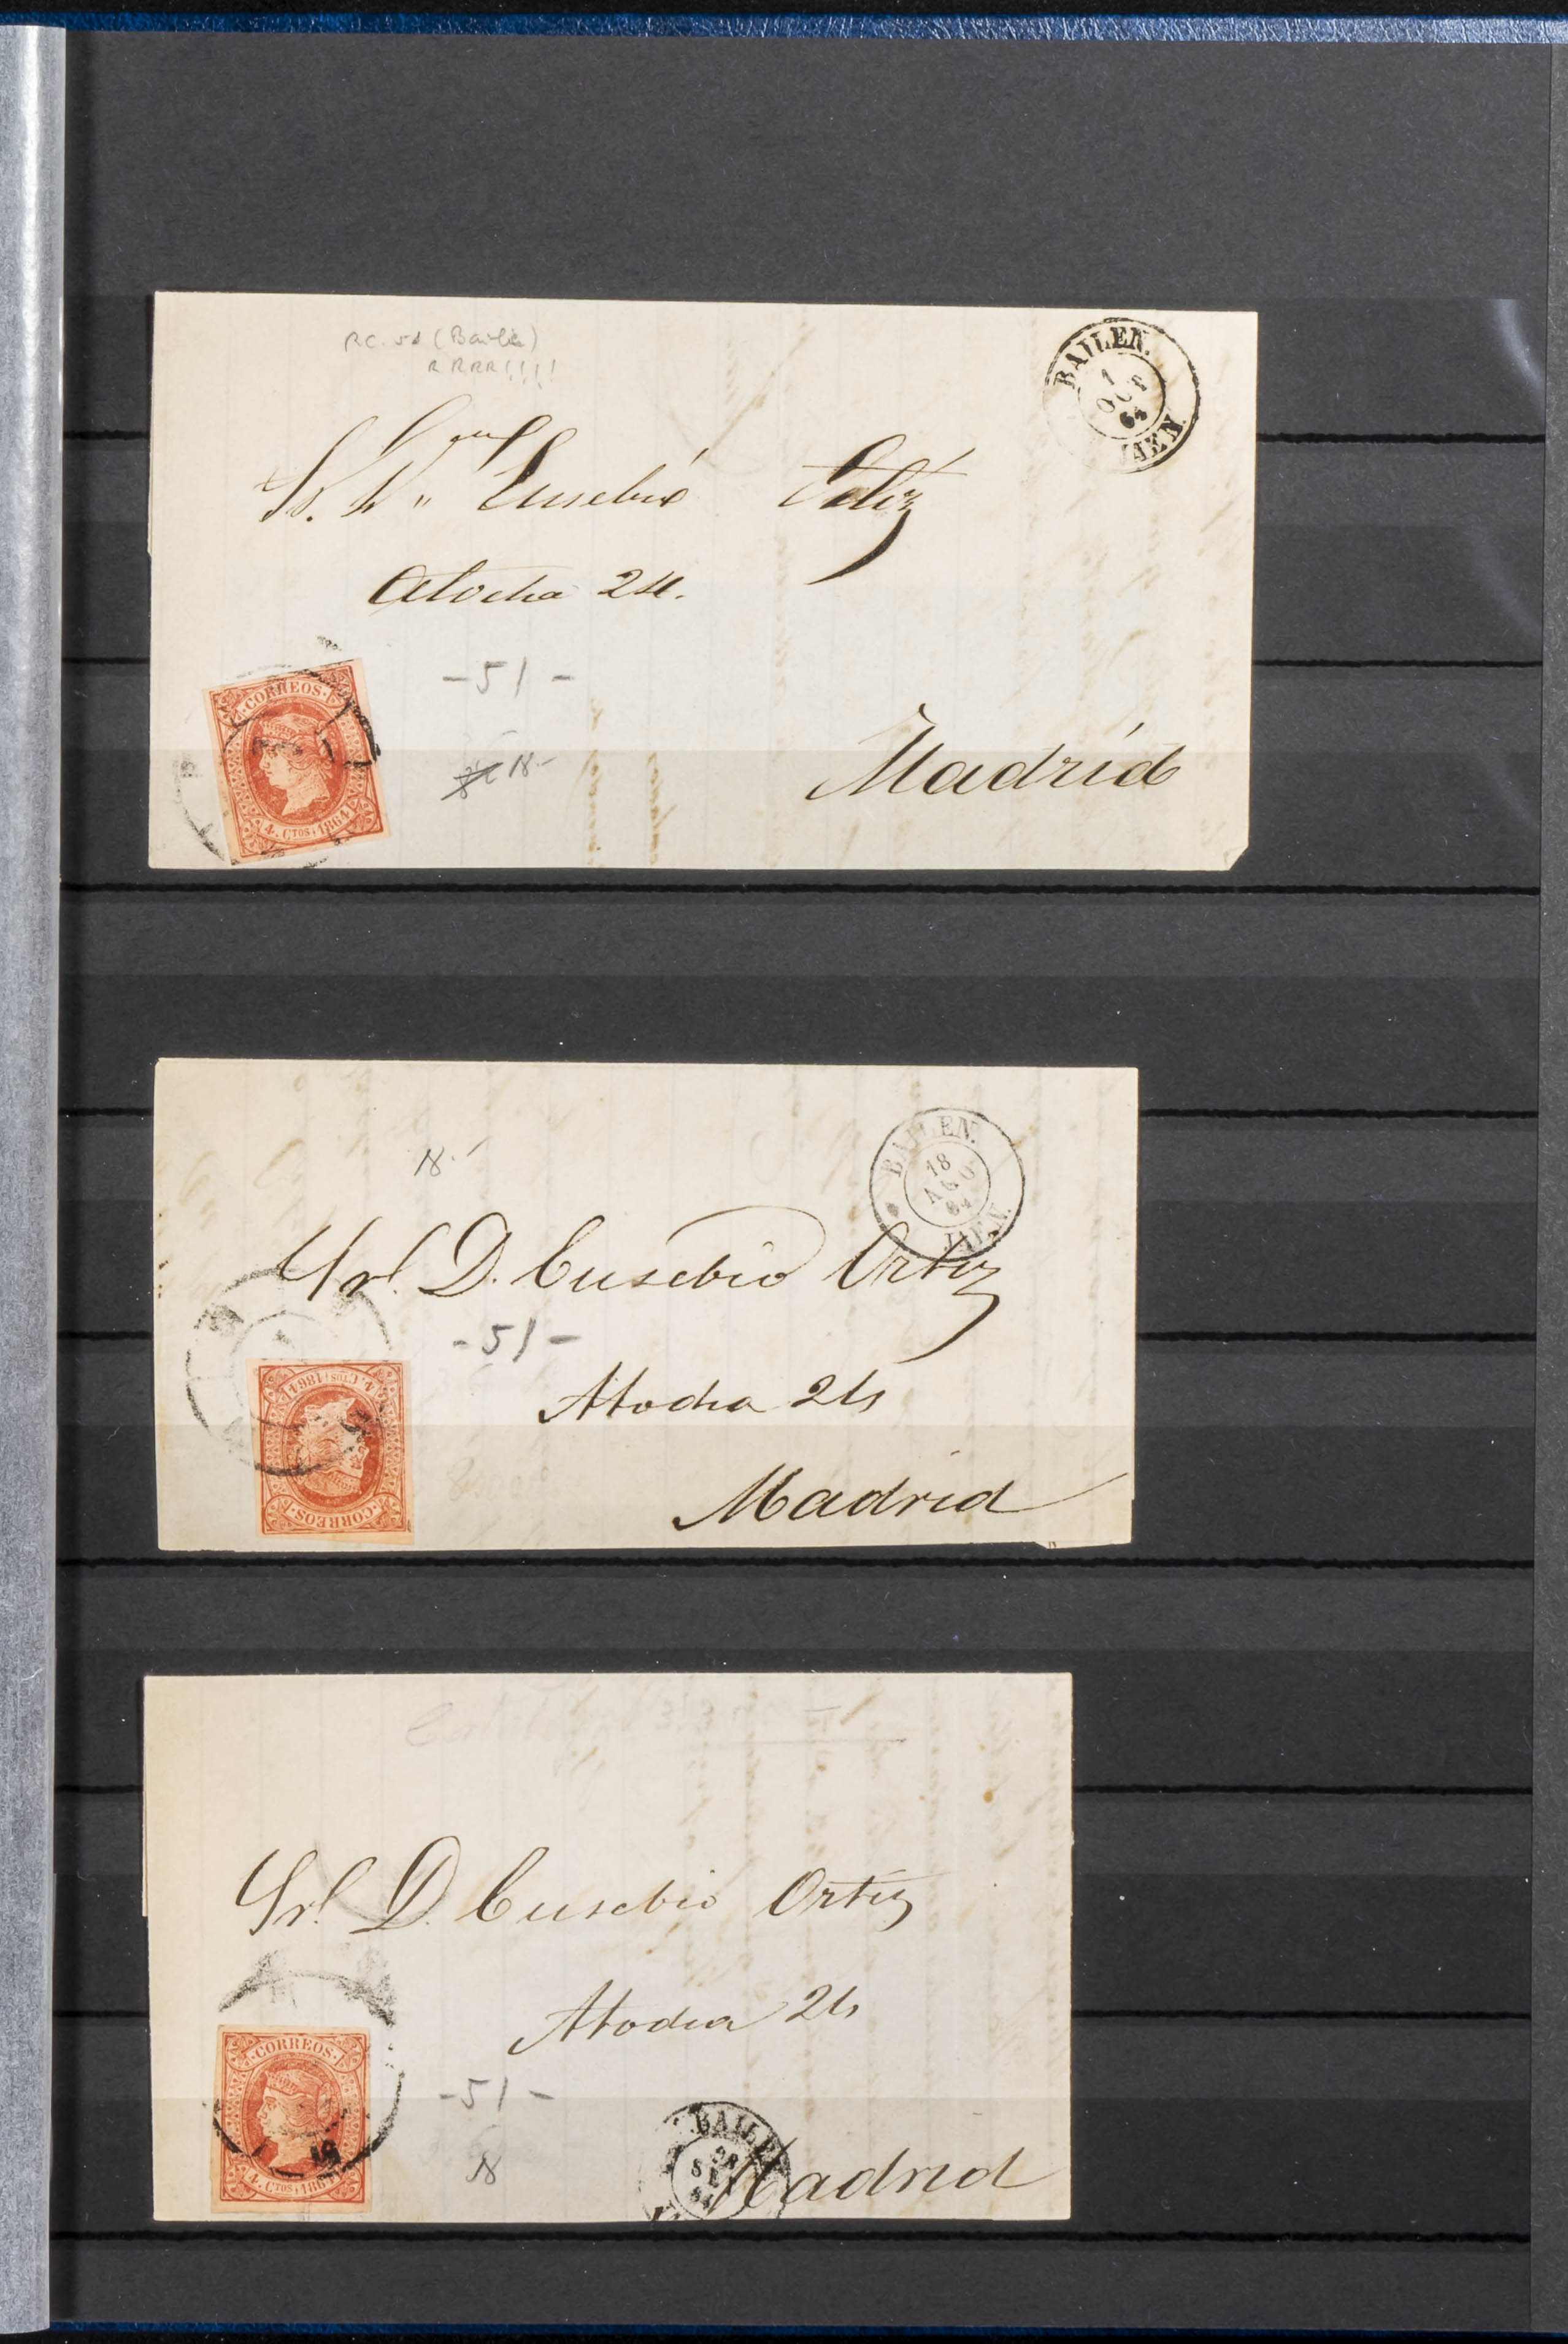 RRRR!!!!
BAILEN.
1
OCT
64
JAEN.
Eusebio
Atocha 24.
CORREOS
4. CTOS. 1864
-51-
18-
Madrid
18.-
BAILEN.
18
AGO
64
JAEN.
Sr. D. Eusebio Ortiz
-51-
Atocha 24
4. CTOS. 1864
CORREOS
Madrid
Sr. D. Eusebio Ortiz
Atocha 24
CORREOS
4. CTOS. 1864
-51-
18
BAILEN
SET
64
Madrid